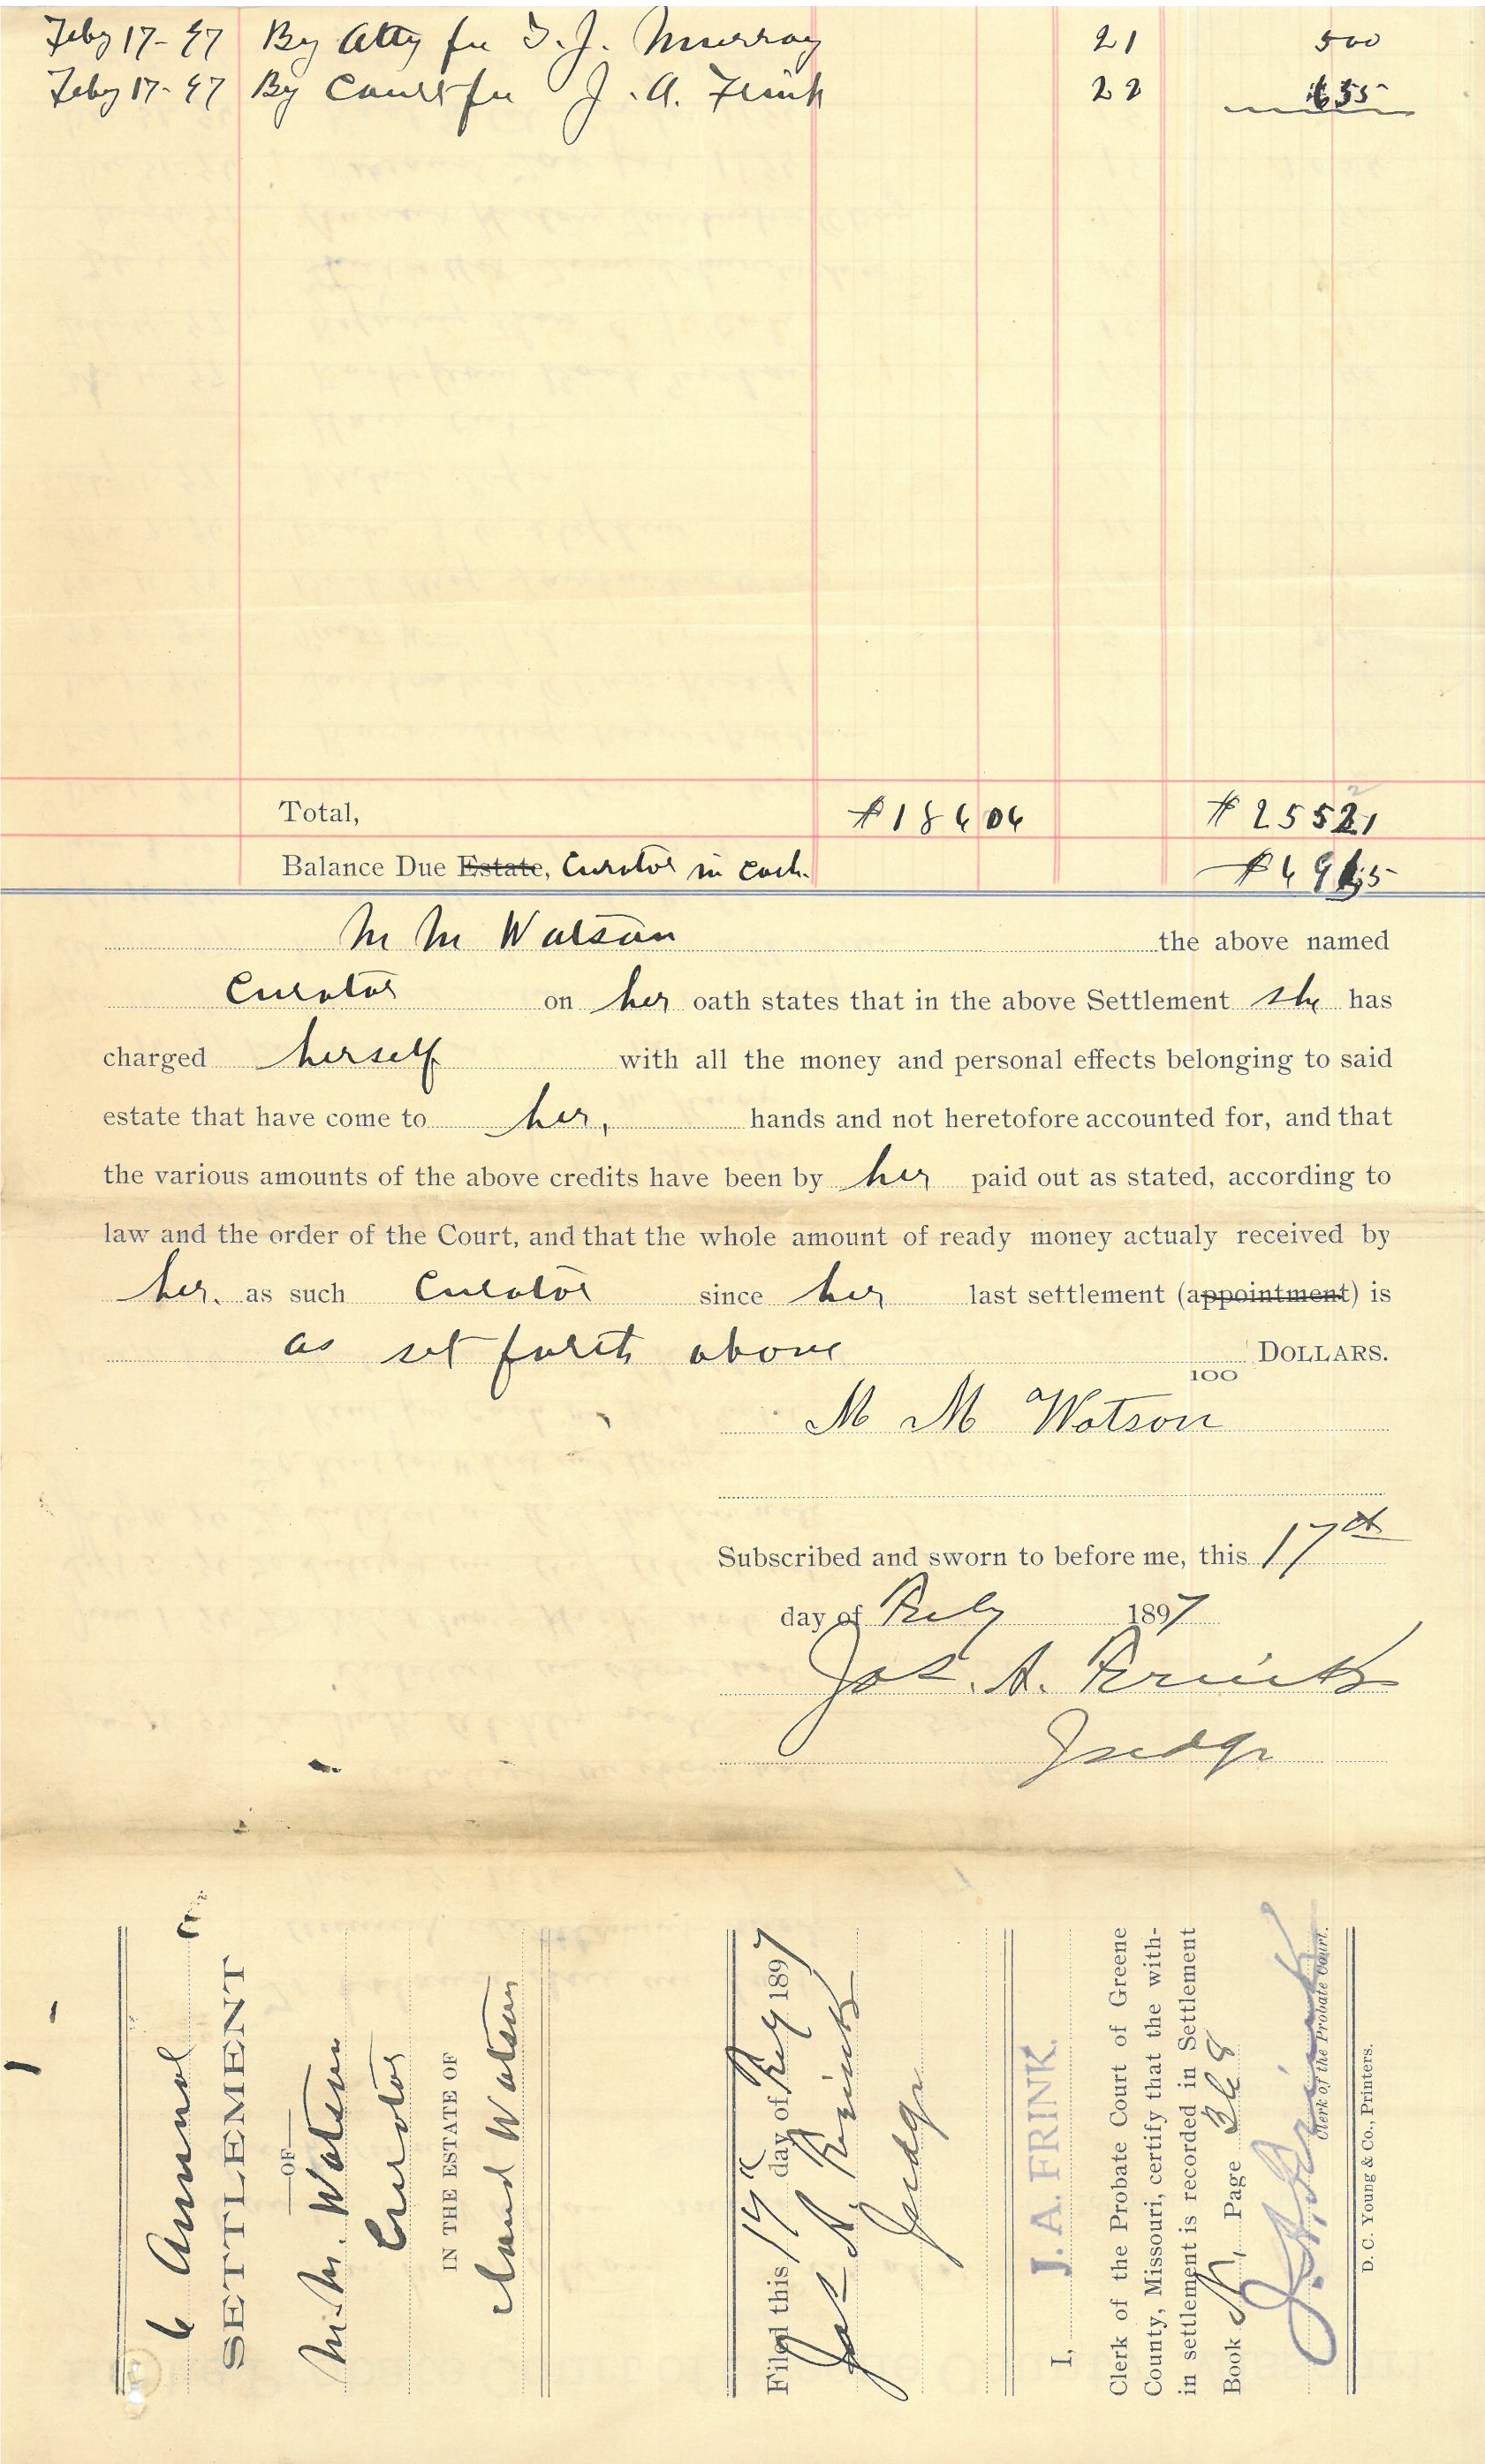 Feby 17-97 By Atty fee T. J. Murray 21 500
Feby 17-97 By Court fee J. A. Frink 22 655
Total, $186 06 $25521
Balance Due Estate, Curator in Cash.
M M Watson the above named
Curator on her oath states that in the above Settlement she has
charged herself with all the money and personal effects belonging to said
estate that have come to her, hands and not heretofore accounted for, and that
the various amounts of the above credits have been by her paid out as stated, according to
law and the order of the Court, and that the whole amount of ready money actualy received by
her. as such Curator since her last settlement (appointment) is
as set forth above DOLLARS.
100
M M Watson
Subscribed and sworn to before me, this 17th
day of Feby 1897
Jos. A. Frink
Judge
6 Annual
SETTLEMENT
OF
M. M. Watson
Curator
IN THE ESTATE OF
Claud Watson
Filed this 17 day of Feby 1897
Jos A. Frink
Judge
I, J. A. FRINK.
Clerk of the Probate Court of Greene
County, Missouri, certify that the with-
in settlement is recorded in Settlement
Book N, Page 368
J. A. Frink
Clerk of the Probate Court.
D. C. Young & Co., Printers.